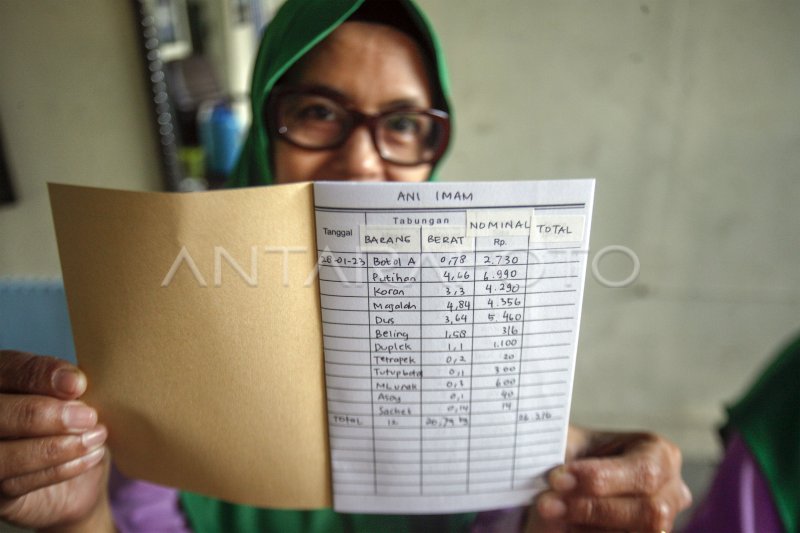 ANI IMAM
Tabungan
Tanggal BARANG BERAT NOMINAL TOTAL
Rp.
28-01-23 Botol A 0,78 2.730
Putihan 4,66 6.990
Koran 3,3 4.290
Majalah 4,84 4.356
Dus 3,64 5.460
Beling 1,58 316
Duplek 1,1 1.100
Tetrapek 0,2 20
Tutup botol 0,1 300
Mainan 0,3 600
Asoy 0,1 40
Sachet 0,14 14
TOTAL 12
ANTARAFOTO